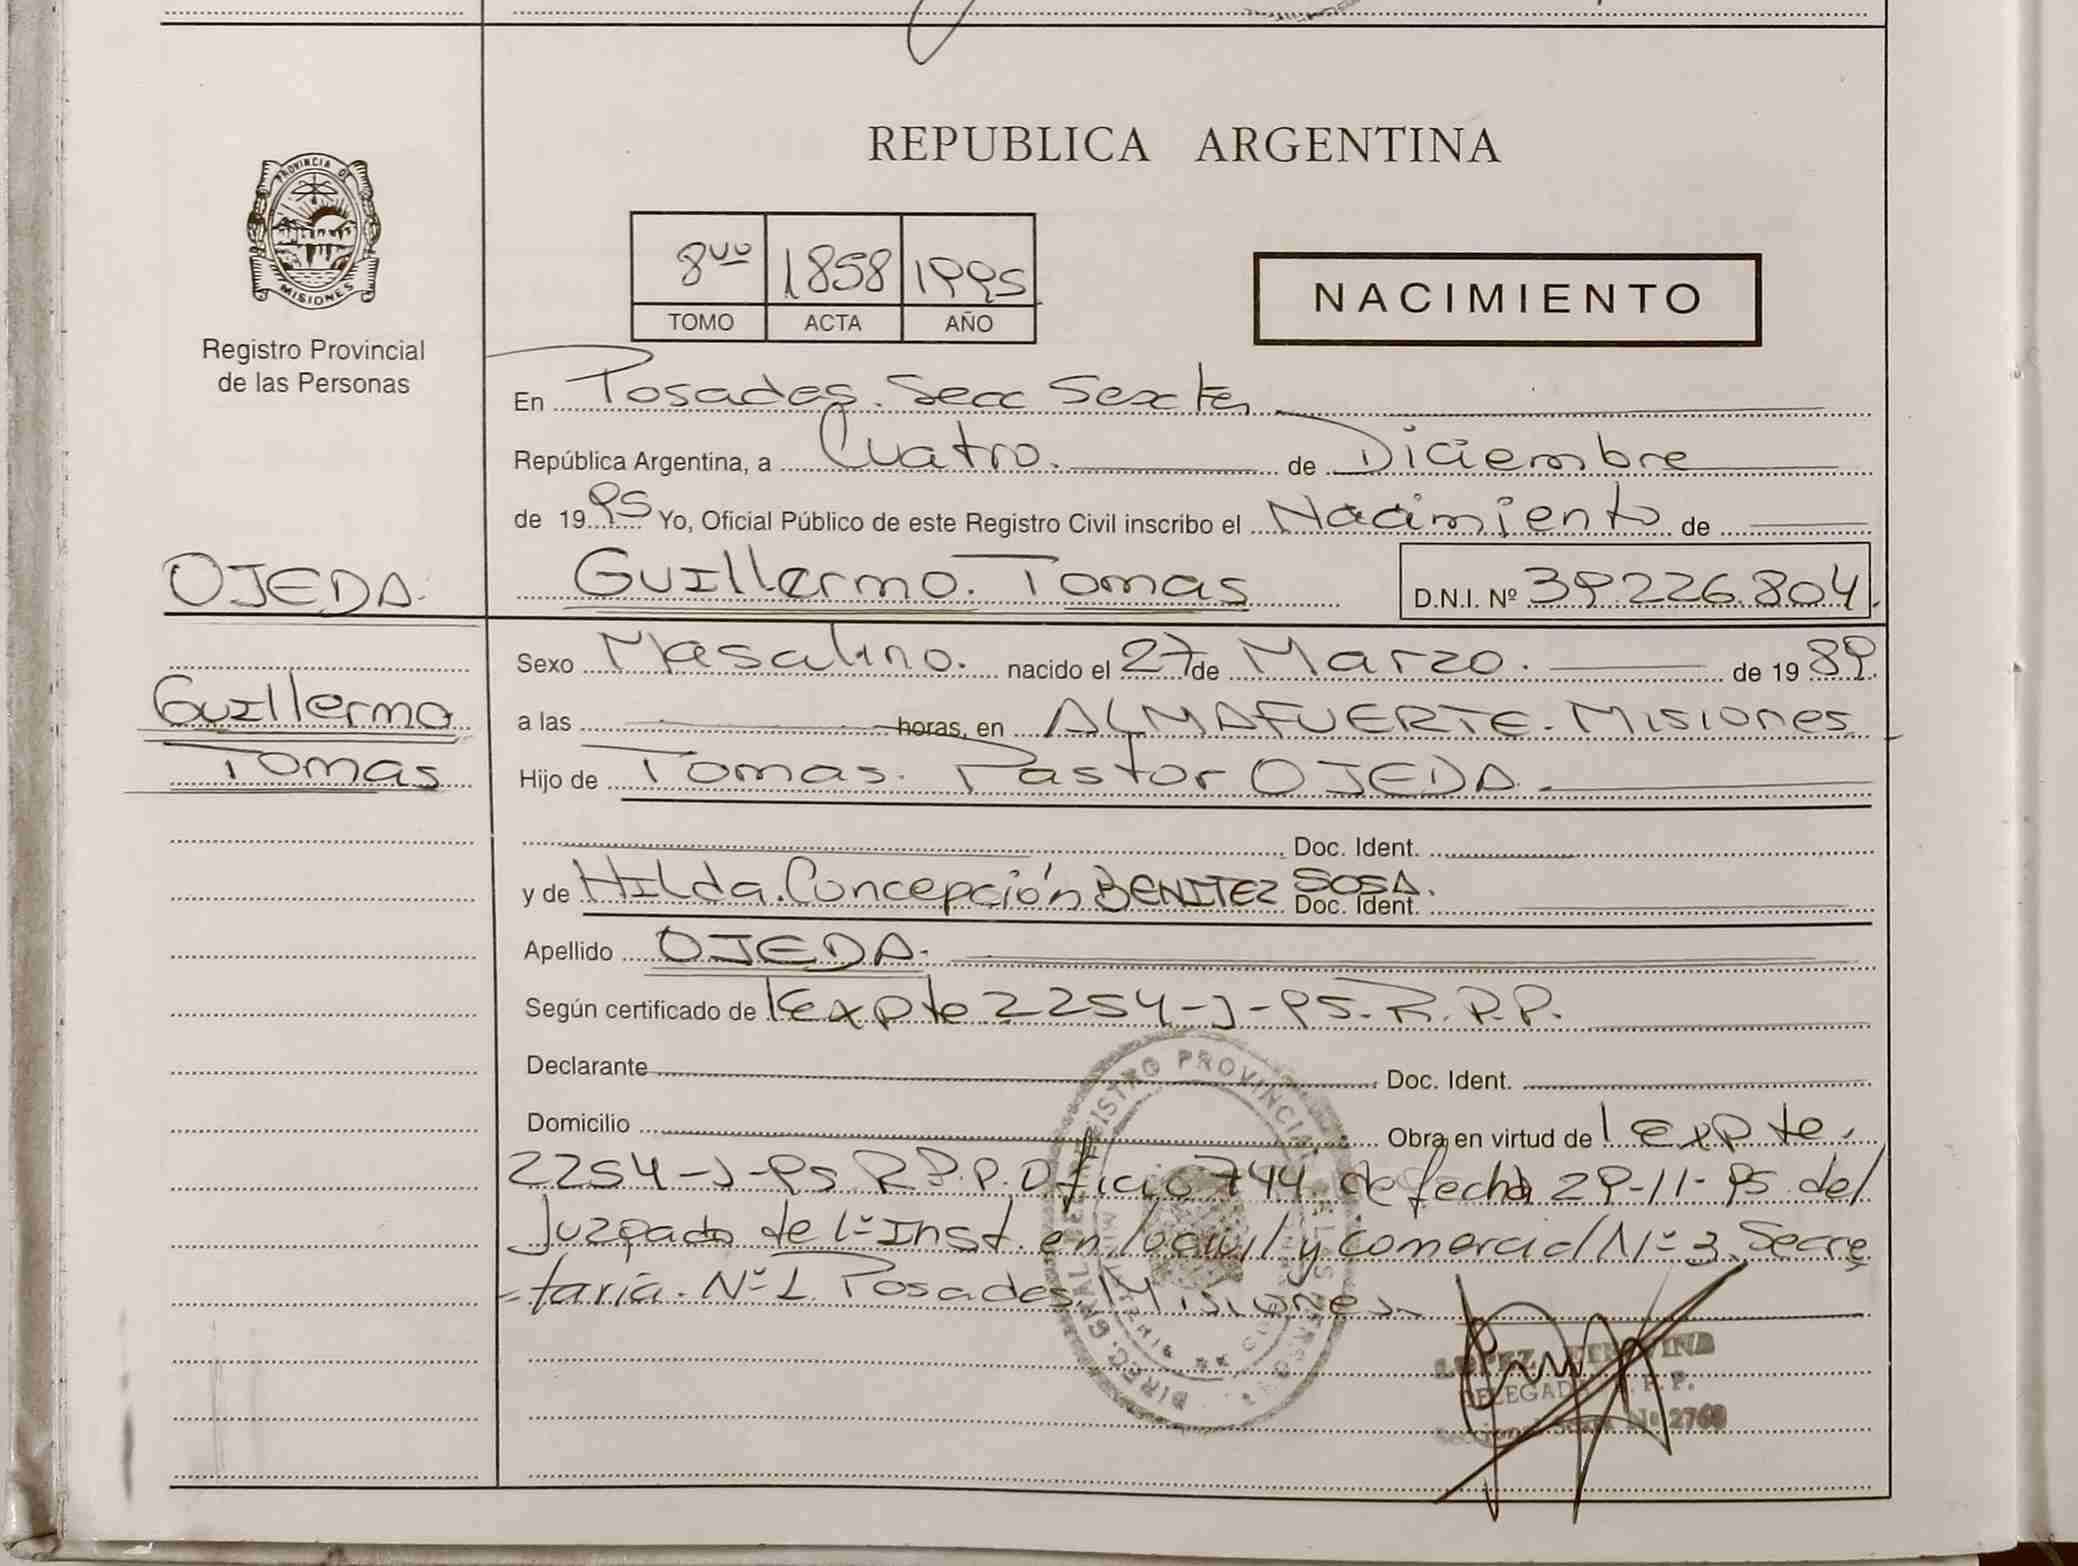 REPUBLICA ARGENTINA
PROVINCIA DE
MISIONES
Registro Provincial
de las Personas
8vo 1858 1995
TOMO ACTA AÑO
NACIMIENTO
En Posadas. Secc Sexta
República Argentina, a Cuatro. de Diciembre
de 1995 Yo, Oficial Público de este Registro Civil inscribo el Nacimiento de
OJEDA. Guillermo. Tomas D.N.I. Nº 39.226.804.
Sexo Masculino. nacido el 27 de Marzo. de 1989.
Guillermo a las horas, en ALMAFUERTE. Misiones
Tomas Hijo de Tomas. Pastor OJEDA.
Doc. Ident.
y de Hilda. Concepción BENITEZ SOSA.
Doc. Ident.
Apellido OJEDA.
Según certificado de Expte 2254-J-95. R.P.P.
Declarante Doc. Ident.
Domicilio Obra en virtud de Expte.
2254-J-95 R.P.P. Oficio 744. de fecha 29-11-95 del
Juzgado de 1º Inst. en lo civil y comercial Nº 3. Secre
=taria. Nº 1. Posadas. Misiones.
DIREC. GRAL. REGISTRO PROVINCIAL DE LAS PERSONAS
LOPEZ
DELEGADA R. P. P.
Seccional Sexta Nº 2760